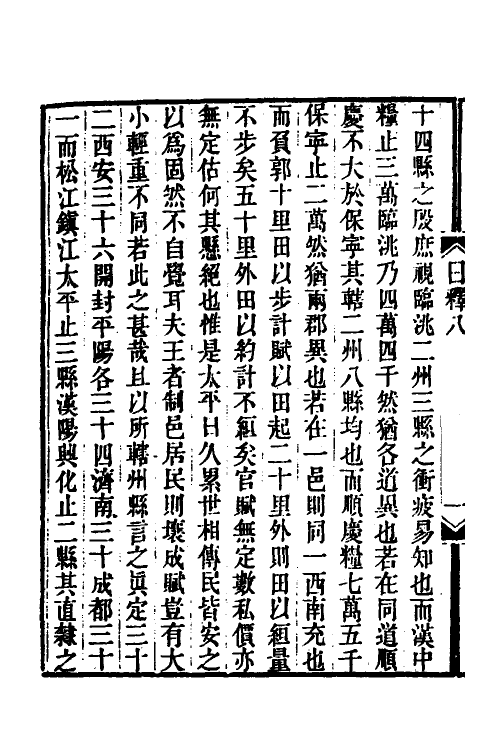 日釋八
十四縣之殷庶視臨洮二州三縣之衝疲易知也而漢中
糧止三萬臨洮乃四萬四千然猶各道異也若在同道順
慶不大於保寧其轄二州八縣均也而順慶糧七萬五千
保寧止二萬然猶兩郡異也若在一邑則同一西南充也
而負郭十里田以步計賦以田起二十里外則田以絙量
不步矣五十里外田以約計不絙矣官賦無定數私價亦
無定估何其懸絕也惟是太平日久累世相傳民皆安之
以爲固然不自覺耳夫王者制邑居民則壤成賦豈有大
小輕重不同若此之甚哉且以所轄州縣言之眞定三十
二西安三十六開封平陽各三十四濟南三十成都三十
一而松江鎮江太平止三縣漢陽興化止二縣其直隸之